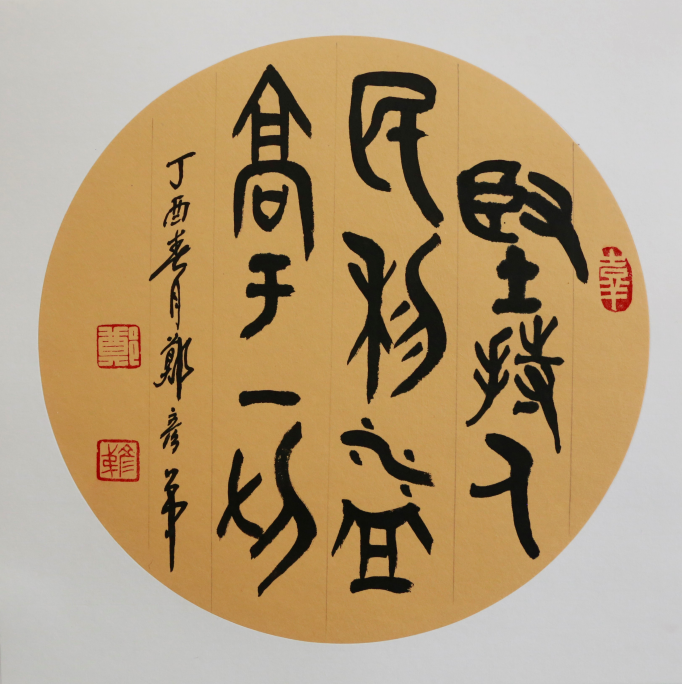 堅持人
民利益
高于一切
丁酉春月鄭彥華
鄭